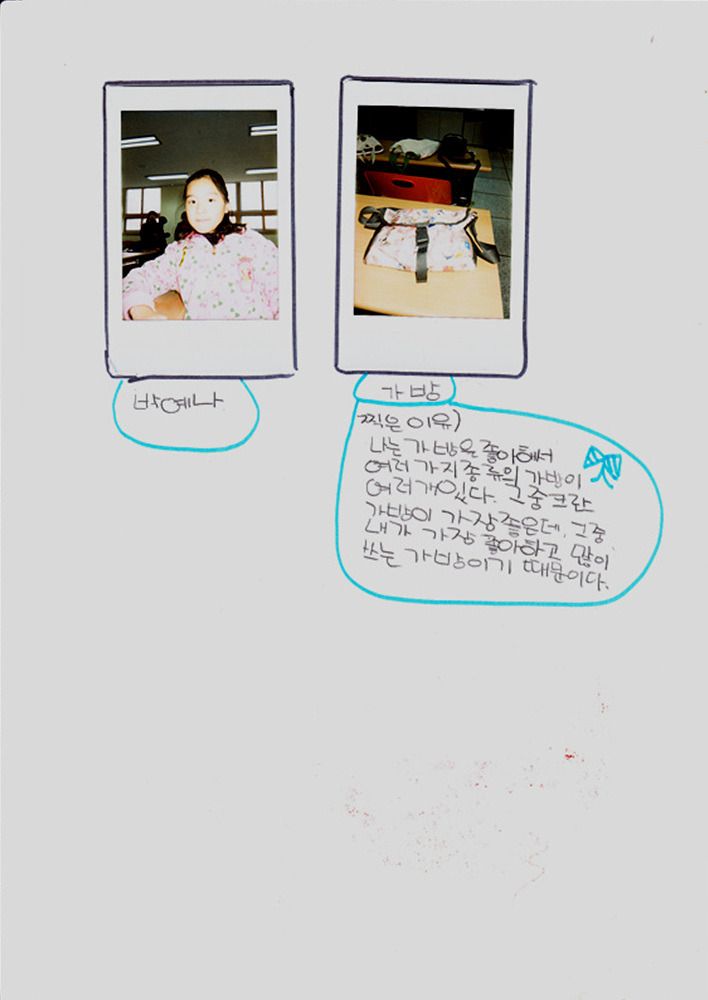 박예나
가방
찍은 이유)
나는 가방을 좋아해서
여러 가지 종류의 가방이
여러개 있다. 그중 크란
가방이 가장 좋은데, 그중
내가 가장 좋아하고 많이
쓰는 가방이기 때문이다.